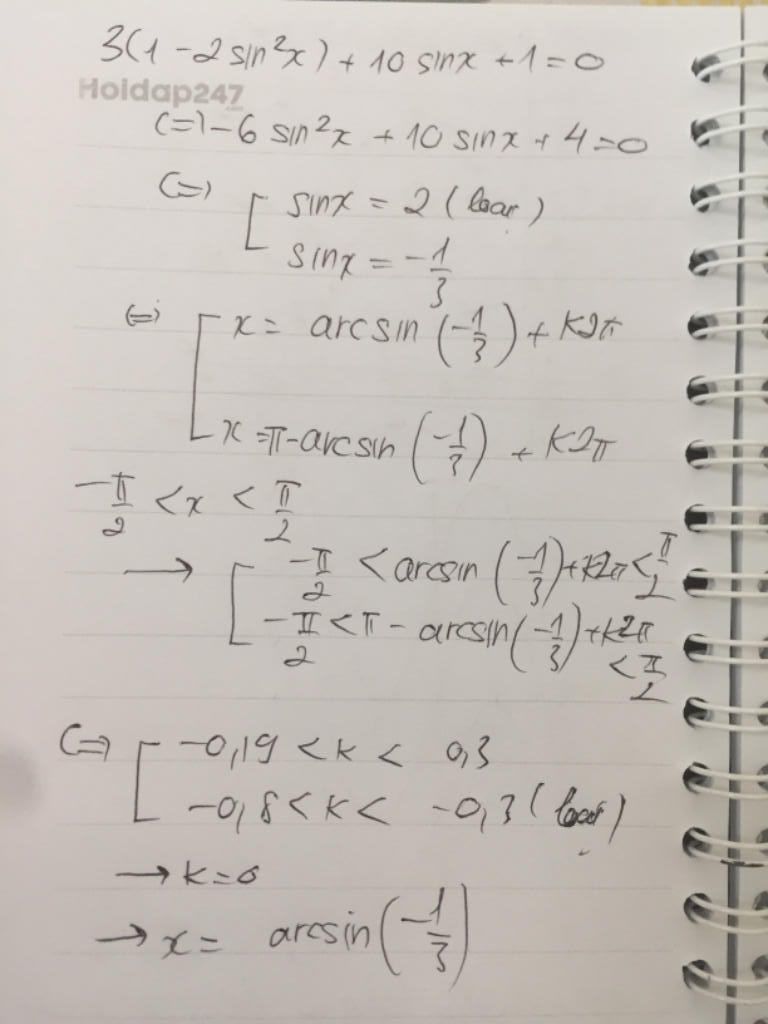 3(1 - 2 sin²x) + 10 sinx + 1 = 0
Hoidap247
(=) - 6 sin²x + 10 sinx + 4 = 0
(=) [ sinx = 2 (loại)
sinx = -1/3
(=) [ x = arcsin (-1/3) + K2π
x = π - arcsin (-1/3) + K2π
-π/2 < x < π/2
→ [ -π/2 < arcsin (-1/3) + K2π < π/2
-π/2 < π - arcsin (-1/3) + K2π
< π/2
(=) [ -0,19 < K < 0,3
-0,8 < K < -0,3 (loại)
→ K = 0
→ x = arcsin (-1/3)